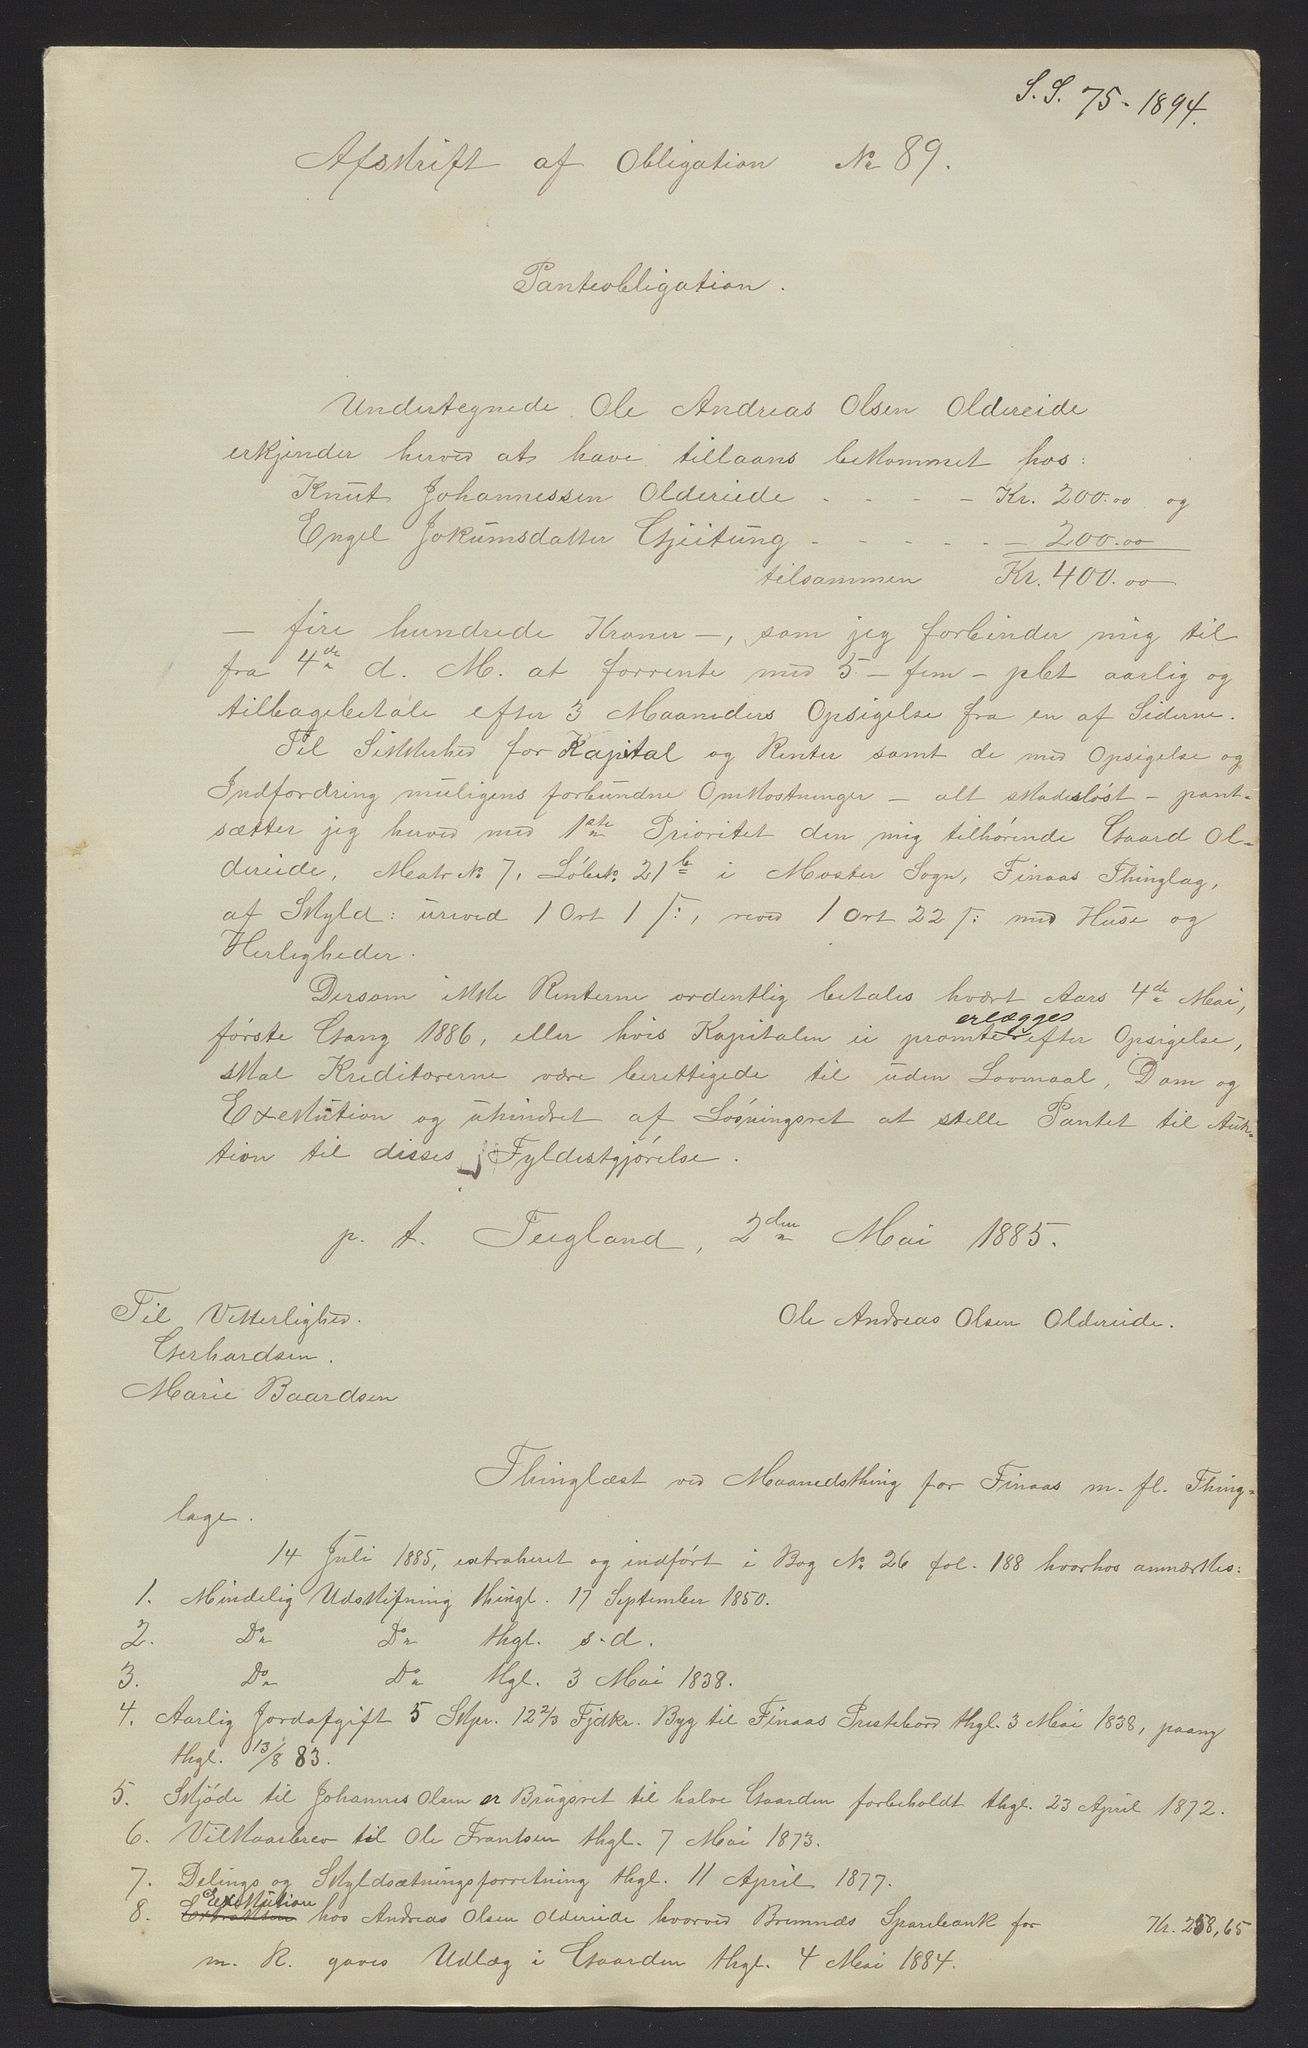 S.S. 75-1894.
Afskrift af Obligation № 89.
Panteobligation.
Undertegnede Ole Andreas Olsen Oldereide
erkjender herved at have tillaans bekommet hos:
Knut Johannessen Oldereide - - - - Kr. 200.00 og
Engel Jokumsdatter Gjeitung - - - - - - 200.00
tilsammen Kr. 400.00
— fire hundrede Kroner —, som jeg forbinder mig til
fra 4de d. M. at forrente med 5 - fem - pCt aarlig og
tilbagebetale efter 3 Maaneders Opsigelse fra en af Siderne.
Til Sikkerhed for Kapital og Renter samt de med Opsigelse og
Indfordring muligens forbundne Omkostninger — alt skadesløst — pant-
sætter jeg herved med 1ste Prioritet den mig tilhørende Gaard Ol-
dereide, Matr № 7, Løbe№ 21b i Moster Sogn, Finaas Thinglag,
af Skyld: urevid 1 Ort 1 ſ:, revid 1 Ort 22 ſ: med Huse og
Herligheder.
Dersom ikke Renterne ordentlig betales hvert Aars 4de Mai,
første Gang 1886, eller hvis Kapitalen ei promte erlægges efter Opsigelse,
skal Kreditorerne være berettigede til uden Lovmaal, Dom og
Exekution og uhindret af Løsningsret at stelle Pantet til Auk-
tion til disses Fyldestgjørelse.
p. t. Teigland, 2den Mai 1885.
Til Vitterlighed. Ole Andreas Olsen Oldereide.
Gerhardsen.
Marie Baardsen
Thinglæst ved Maanedsthing for Finaas m. fl. Thing-
lage.
14 Juli 1885, extraheret og indført i Bog № 26 fol. 188 hvorhos anmærkes:
1. Mindelig Udskifning thingl. 17 September 1850.
2. Do Do thgl. s. d.
3. Do Do thgl. 3 Mai 1838.
4. Aarlig Jordafgift 5 Skpr. 12 2/3 Fjdkr. Byg til Finaas Prestebord thgl. 3 Mai 1838, paany
thgl. 13/8 83.
5. Skjøde til Johannes Olsen er Brugsret til halve Gaarden forbeholdt thgl. 23 April 1872.
6. Vilkaarsbrev til Ole Frantsen thgl. 7 Mai 1873.
7. Delings og Skyldsætningsforretning thgl. 11 April 1877.
8. Exekution hos Andreas Olsen Oldereide hvorved Bremnæs Sparebank for Kr. 258,65
m. R. gaves Udlæg i Gaarden thgl. 4 Mai 1884.